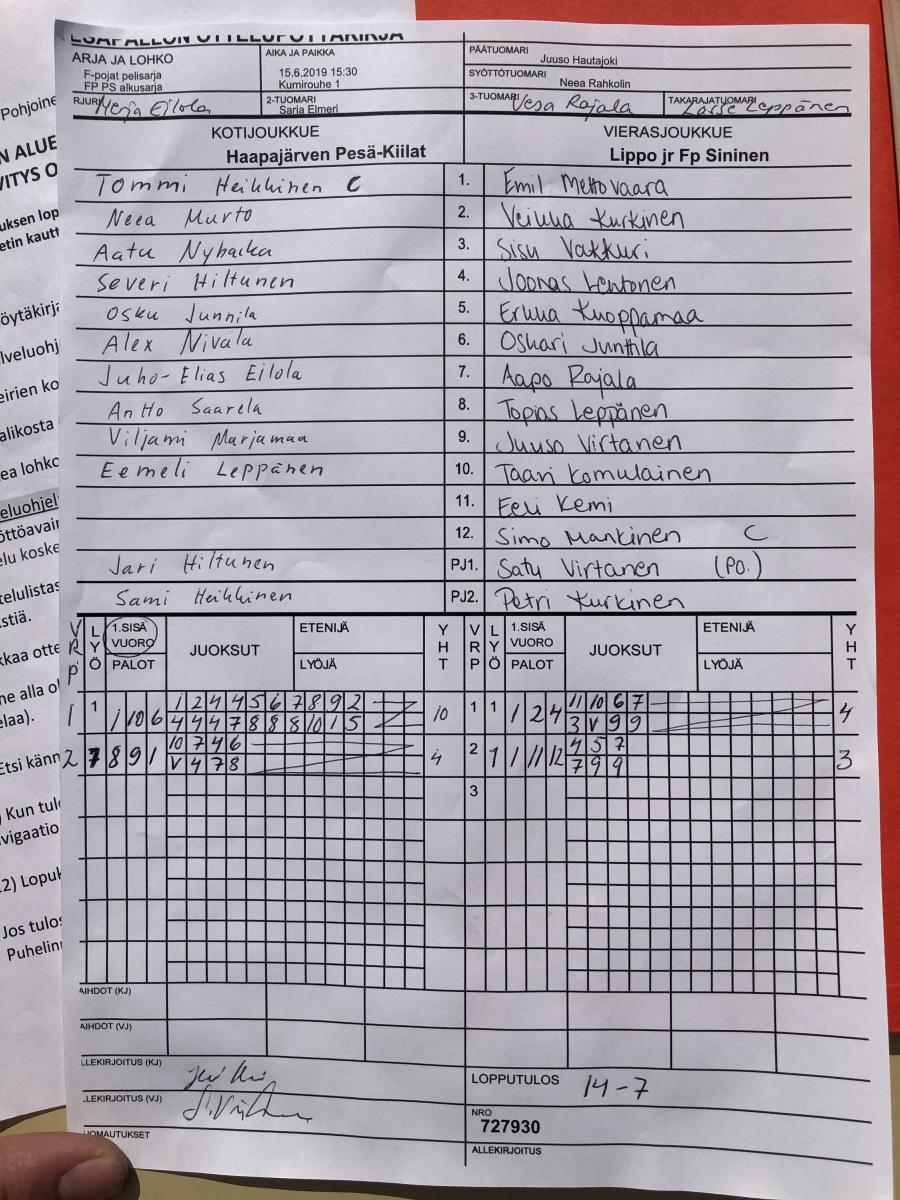 ESÄPALLON OTTELUPÖYTÄKIRJA
ARJA JA LOHKO
F-pojat pelisarja
FP PS alkusarja
AIKA JA PAIKKA
15.6.2019 15:30
Kumirouhe 1
PÄÄTUOMARI
Juuso Hautajoki
SYÖTTÖTUOMARI
Neea Rahkolin
RJURI Merja Eilola
2-TUOMARI
Saria Elmeri
3-TUOMARI Vesa Rajala
TAKARAJATUOMARI Lasse Leppänen
KOTIJOUKKUE
Haapajärven Pesä-Kiilat
VIERASJOUKKUE
Lippo jr Fp Sininen
Tommi Heikkinen C 1. Emil Mettovaara
Neea Murto 2. Kurkinen
Aatu 3. Sisu Vakkuri
Severi Hiltunen 4. Joonas Lehtonen
Osku Junnila 5. Kuoppamaa
Alex Nivala 6. Oskari Junttila
Juho-Elias Eilola 7. Aapo Rajala
Antto Saarela 8. Topias Leppänen
Viljami Marjamaa 9. Juuso Virtanen
Eemeli Leppänen 10. Taavi Komulainen
11. Eeli Kemi
12. Simo Mankinen C
Jari Hiltunen PJ1. Satu Virtanen (PO.)
Sami Heikkinen PJ2. Petri Kurkinen
VRP LYÖ 1.SISÄ VUORO PALOT JUOKSUT ETENIJÄ LYÖJÄ YHT VRP LYÖ 1.SISÄ VUORO PALOT JUOKSUT ETENIJÄ LYÖJÄ YHT
1 1 1 10 6 1 2 4 4 5 6 7 8 9 2 10 1 1 1 2 4 11 10 6 7 4
4 4 4 7 8 8 8 10 1 5 3 V 9 9
2 7 8 9 1 10 7 4 6 4 2 1 1 11 12 4 5 7 3
V 4 7 8 7 9 9
3
AIHDOT (KJ)
AIHDOT (VJ)
LLEKIRJOITUS (KJ)
LLEKIRJOITUS (VJ)
UOMAUTUKSET
LOPPUTULOS 14-7
NRO
727930
ALLEKIRJOITUS
Pohjoine
N ALUE
VITYS O
uksen lop
etin kautt
öytäkirja
lveluohj
eirien ko
alikosta
ea lohko
eluohjel
öttöavain
elu koske
telulistas
stiä.
kkaa otte
ne alla ol
elaa).
Etsi känn
) Kun tul
navigaatio
2) Lopuk
Jos tulos
Puhelinn